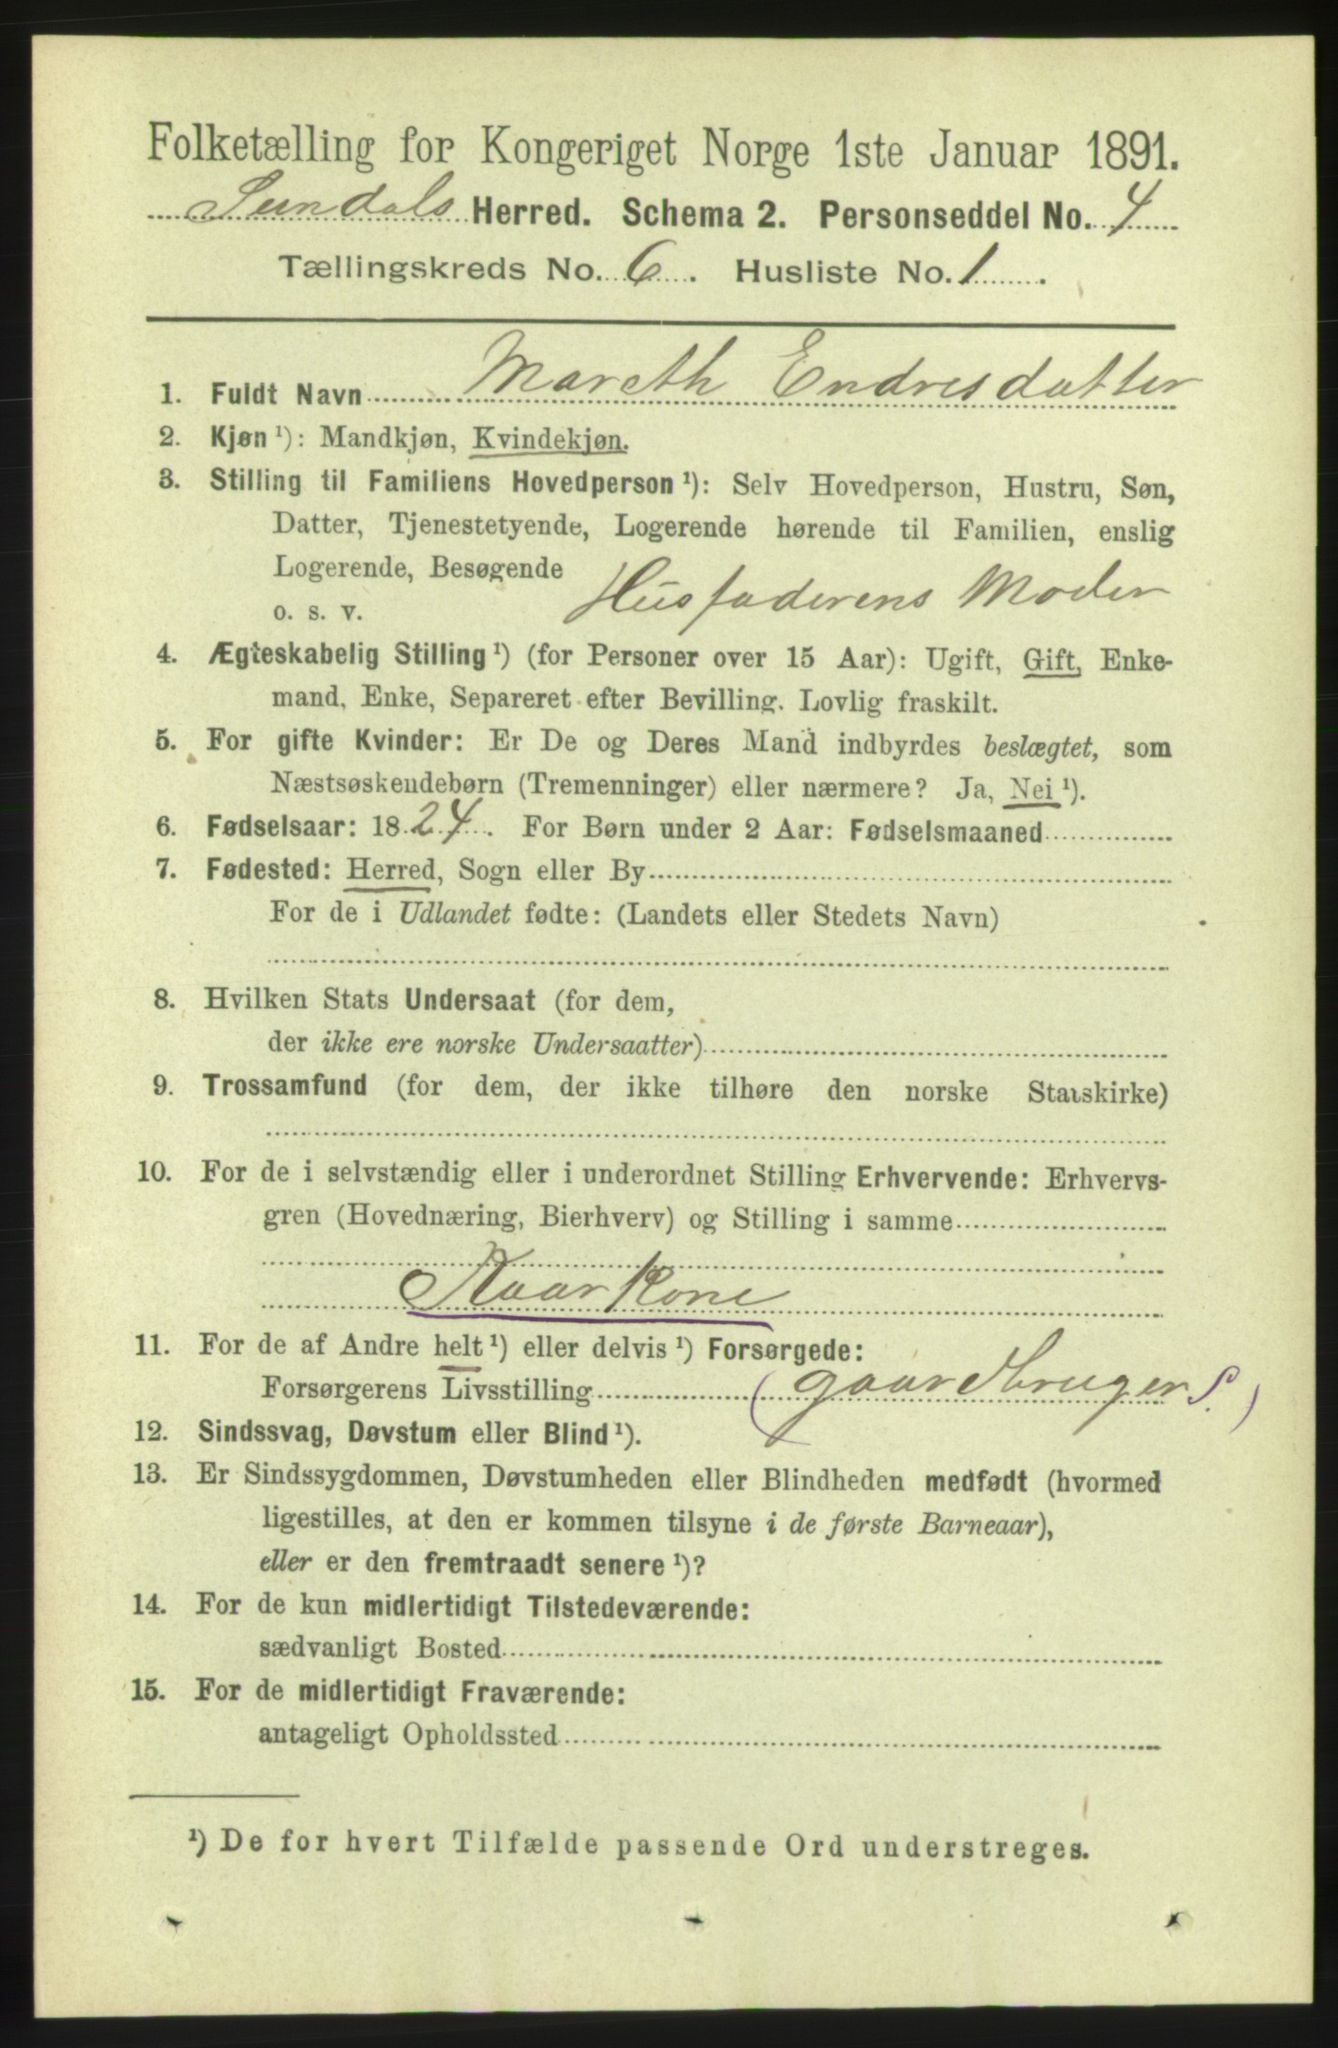 Folketælling for Kongeriget Norge 1ste Januar 1891.
Sundals Herred. Schema 2. Personseddel No. 4
Tællingskreds No. 6. Husliste No. 1.
1. Fuldt Navn Mareth Endresdatter
2. Kjøn ¹): Mandkjøn, Kvindekjøn.
3. Stilling til Familiens Hovedperson ¹): Selv Hovedperson, Hustru, Søn,
Datter, Tjenestetyende, Logerende hørende til Familien, enslig
Logerende, Besøgende
o. s. v. Husfaderens Moder
4. Ægteskabelig Stilling ¹) (for Personer over 15 Aar): Ugift, Gift, Enke-
mand, Enke, Separeret efter Bevilling. Lovlig fraskilt.
5. For gifte Kvinder: Er De og Deres Mand indbyrdes beslægtet, som
Næstsøskendebørn (Tremenninger) eller nærmere? Ja, Nei ¹).
6. Fødselsaar: 1824. For Børn under 2 Aar: Fødselsmaaned
7. Fødested: Herred, Sogn eller By
For de i Udlandet fødte: (Landets eller Stedets Navn)
8. Hvilken Stats Undersaat (for dem,
der ikke ere norske Undersaatter)
9. Trossamfund (for dem, der ikke tilhøre den norske Statskirke)
10. For de i selvstændig eller i underordnet Stilling Erhvervende: Erhvervs-
gren (Hovednæring, Bierhverv) og Stilling i samme
Kaarkone
11. For de af Andre helt ¹) eller delvis ¹) Forsørgede:
Forsørgerens Livsstilling (gaardbruger S.)
12. Sindssvag, Døvstum eller Blind ¹).
13. Er Sindssygdommen, Døvstumheden eller Blindheden medfødt (hvormed
ligestilles, at den er kommen tilsyne i de første Barneaar),
eller er den fremtraadt senere ¹)?
14. For de kun midlertidigt Tilstedeværende:
sædvanligt Bosted
15. For de midlertidigt Fraværende:
antageligt Opholdssted
¹) De for hvert Tilfælde passende Ord understreges.